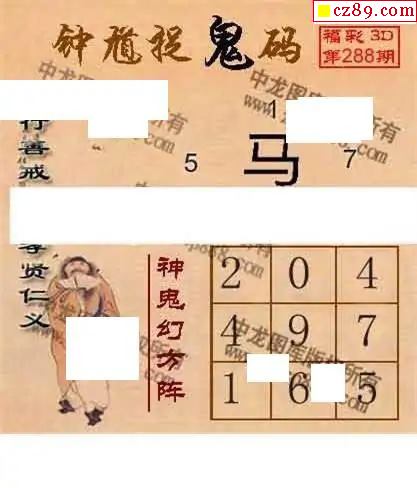 cz89.com
钟馗捉鬼码
福彩3D
第288期
行善戒
孝贤仁义
1
5 马 7
神鬼幻方阵
2 0 4
4 9 7
1 6 5
中龙图库版权所有